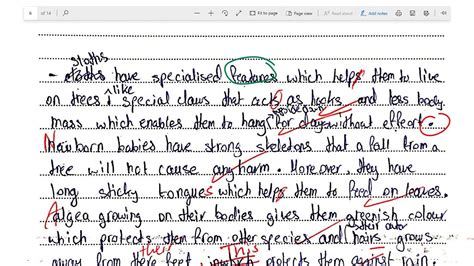 6 of 14
Fit to page
Page view
sloths
- sloths have specialised features which helps them to live
on trees like special claws that acts as hooks and less body
mass which enables them to hang for days without effort.
Newborn babies have strong skeletons that a fall from a
tree will not cause any harm. Moreover, they have
long sticky tongues which helps them to feed on leaves.
Algea growing on their bodies gives them greenish colour
which protects them from other species and hairs grows
away from there feet protects them against rain.
their This